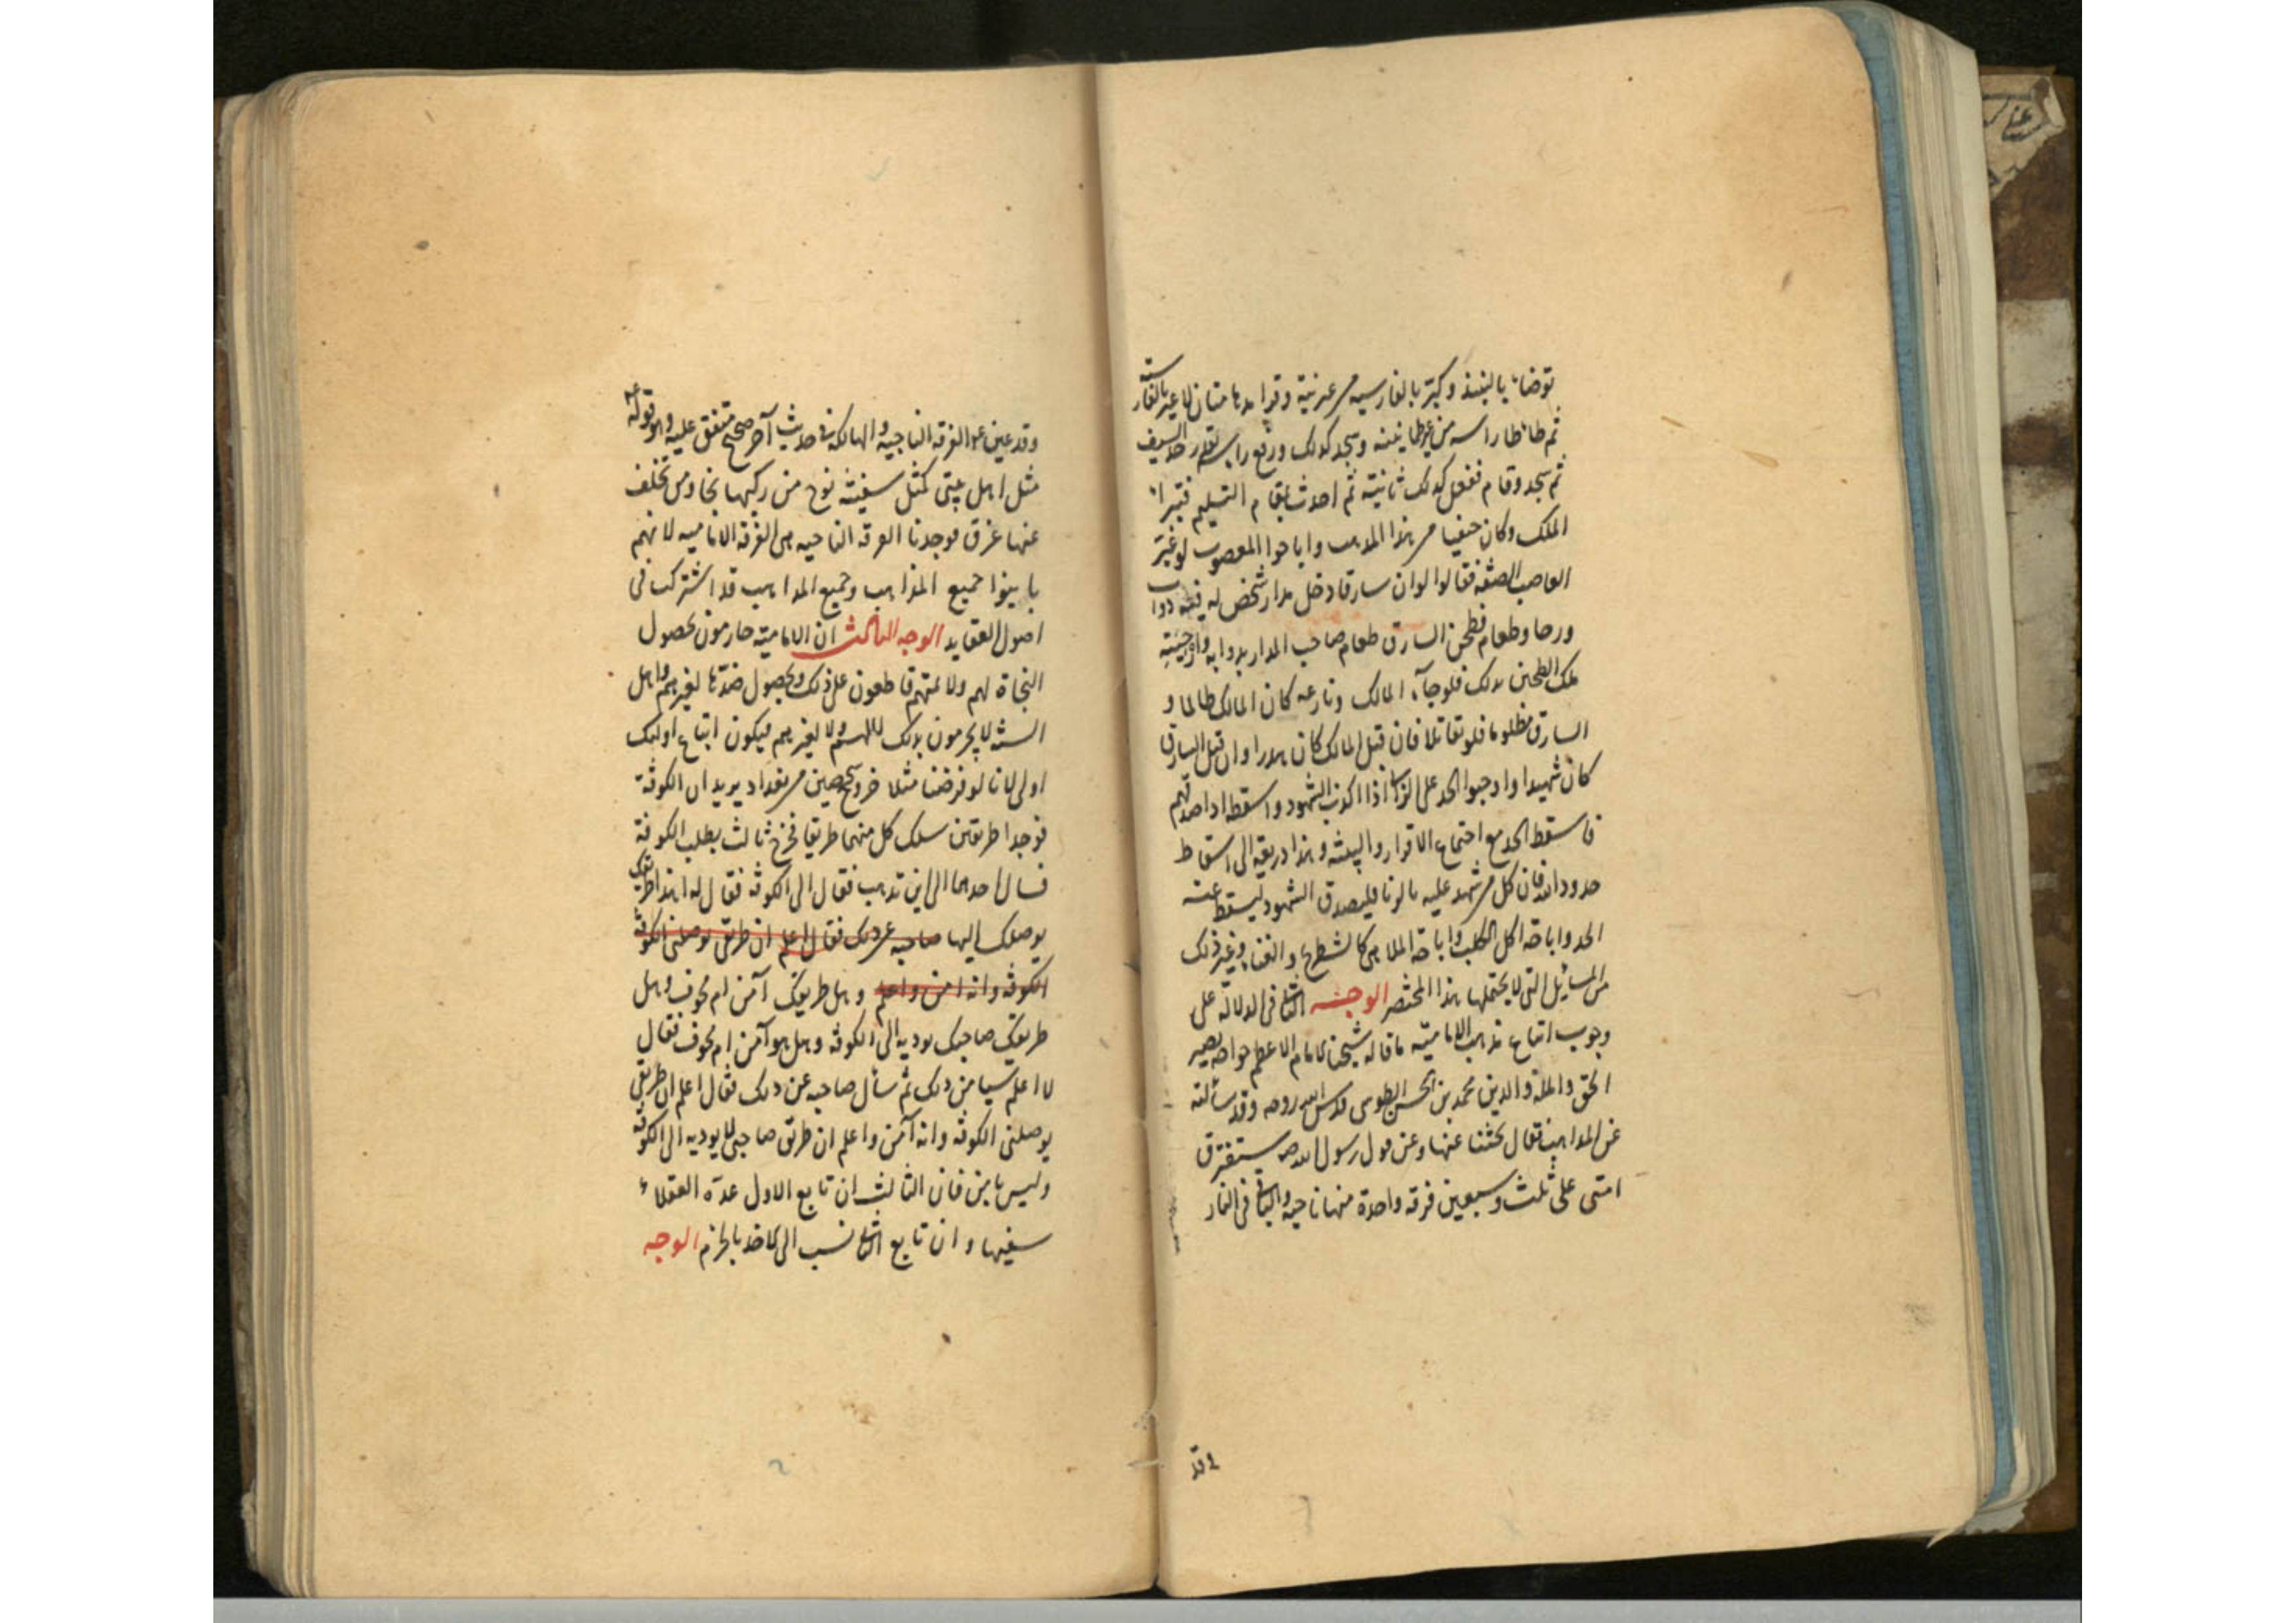 توضاء بالنبيذ وكبر بالفارسيه من غير نية وقرا مدهامتان لا غير بالفارسية
ثم طاطا راسه من غير طمانينه وسجد كذلك ورفع راسه بقدر حد السيف
ثم سجد وقام ففعل كذلك ثانية ثم احدث بمقام التسليم فتبرا
الملك وكان حنفيا من هذا المذهب واباحوا المغصوب لو غير
الغاصب الصفه فقالوا لو ان سارقا دخل مدار شخص له فيه دواب
ورحا وطعام فطحن السارق طعام صاحب الدار بدوابه وارحيته
ملك الطحين بذلك فلو جاء المالك ونازعه كان المالك ظالما و
السارق مظلوما فلو تقاتلا فان قتل المالك كان هدرا وان قتل السارق
كان شهيدا واوجبوا الحد على الزاني اذا اكذب الشهود واسقطه اذا صدقهم
فاسقط الحد مع اجتماع الاقرار والبينة وهذا ذريعة الى اسقاط
حدود الله فان كل من شهد عليه بالزنا فليصدق الشهود ليسقط عنه
الحد واباحة اكل الكلب واباحة الملاهي كالشطرنج والغناء وغير ذلك
من المسائل التي لا يحتملها هذا المختصر الوجه الثاني في الدلاله على
وجوب اتباع مذهب الامامية ما قاله شيخنا الامام الاعظم خواجه نصير
الحق والملة والدين محمد بن الحسن الطوسي قدس الله روحه وقد سألته
عن المذاهب فقال بحثنا عنها وعن قول رسول الله ص ستفترق
امتي على ثلث وسبعين فرقه واحدة منها ناجيه والباقي في النار
وقد
وقد عين ع الفرقه الناجية والهالكة في حديث آخر صحيح متفق عليه وهو قوله ع
مثل اهل بيتي كمثل سفينة نوح من ركبها نجا ومن تخلف
عنها غرق فوجدنا الفرقه الناجيه هي الفرقه الاماميه لانهم
باينوا جميع المذاهب وجميع المذاهب قد اشتركت في
اصول العقايد الوجه الثالث ان الامامية جازمون بحصول
النجاة لهم ولائمتهم قاطعون على ذلك وبحصول ضدها لغيرهم واهل
السنة لا يجزمون بذلك لا لهم ولا لغيرهم فيكون اتباع اولئك
اولى لانا لو فرضنا مثلا خروج شخصين من بغداد يريدان الكوفة
فوجدا طريقين سلك كل منهما طريقا فخرج ثالث يطلب الكوفة
فسال احدهما الى اين تذهب فقال الى الكوفة فقال له اهذا طريقك
يوصلك اليها صاحبه عن ذلك فقال اعلم ان طريقي يوصلني الكوفة
الكوفة وانه امن واعلم وهل طريقك آمن ام مخوف وهل
طريق صاحبك يوديه الى الكوفة وهل هو آمن ام مخوف فقال
لا اعلم شيا من ذلك ثم سأل صاحبه عن ذلك فقال اعلم ان طريقي
يوصلني الكوفة وانه آمن واعلم ان طريق صاحبي لا يوديه الى الكوفة
وليس بامن فان الثالث ان تابع الاول عده العقلاء
سفيها وان تابع الثاني نسب الى الاخذ بالحزم الوجه